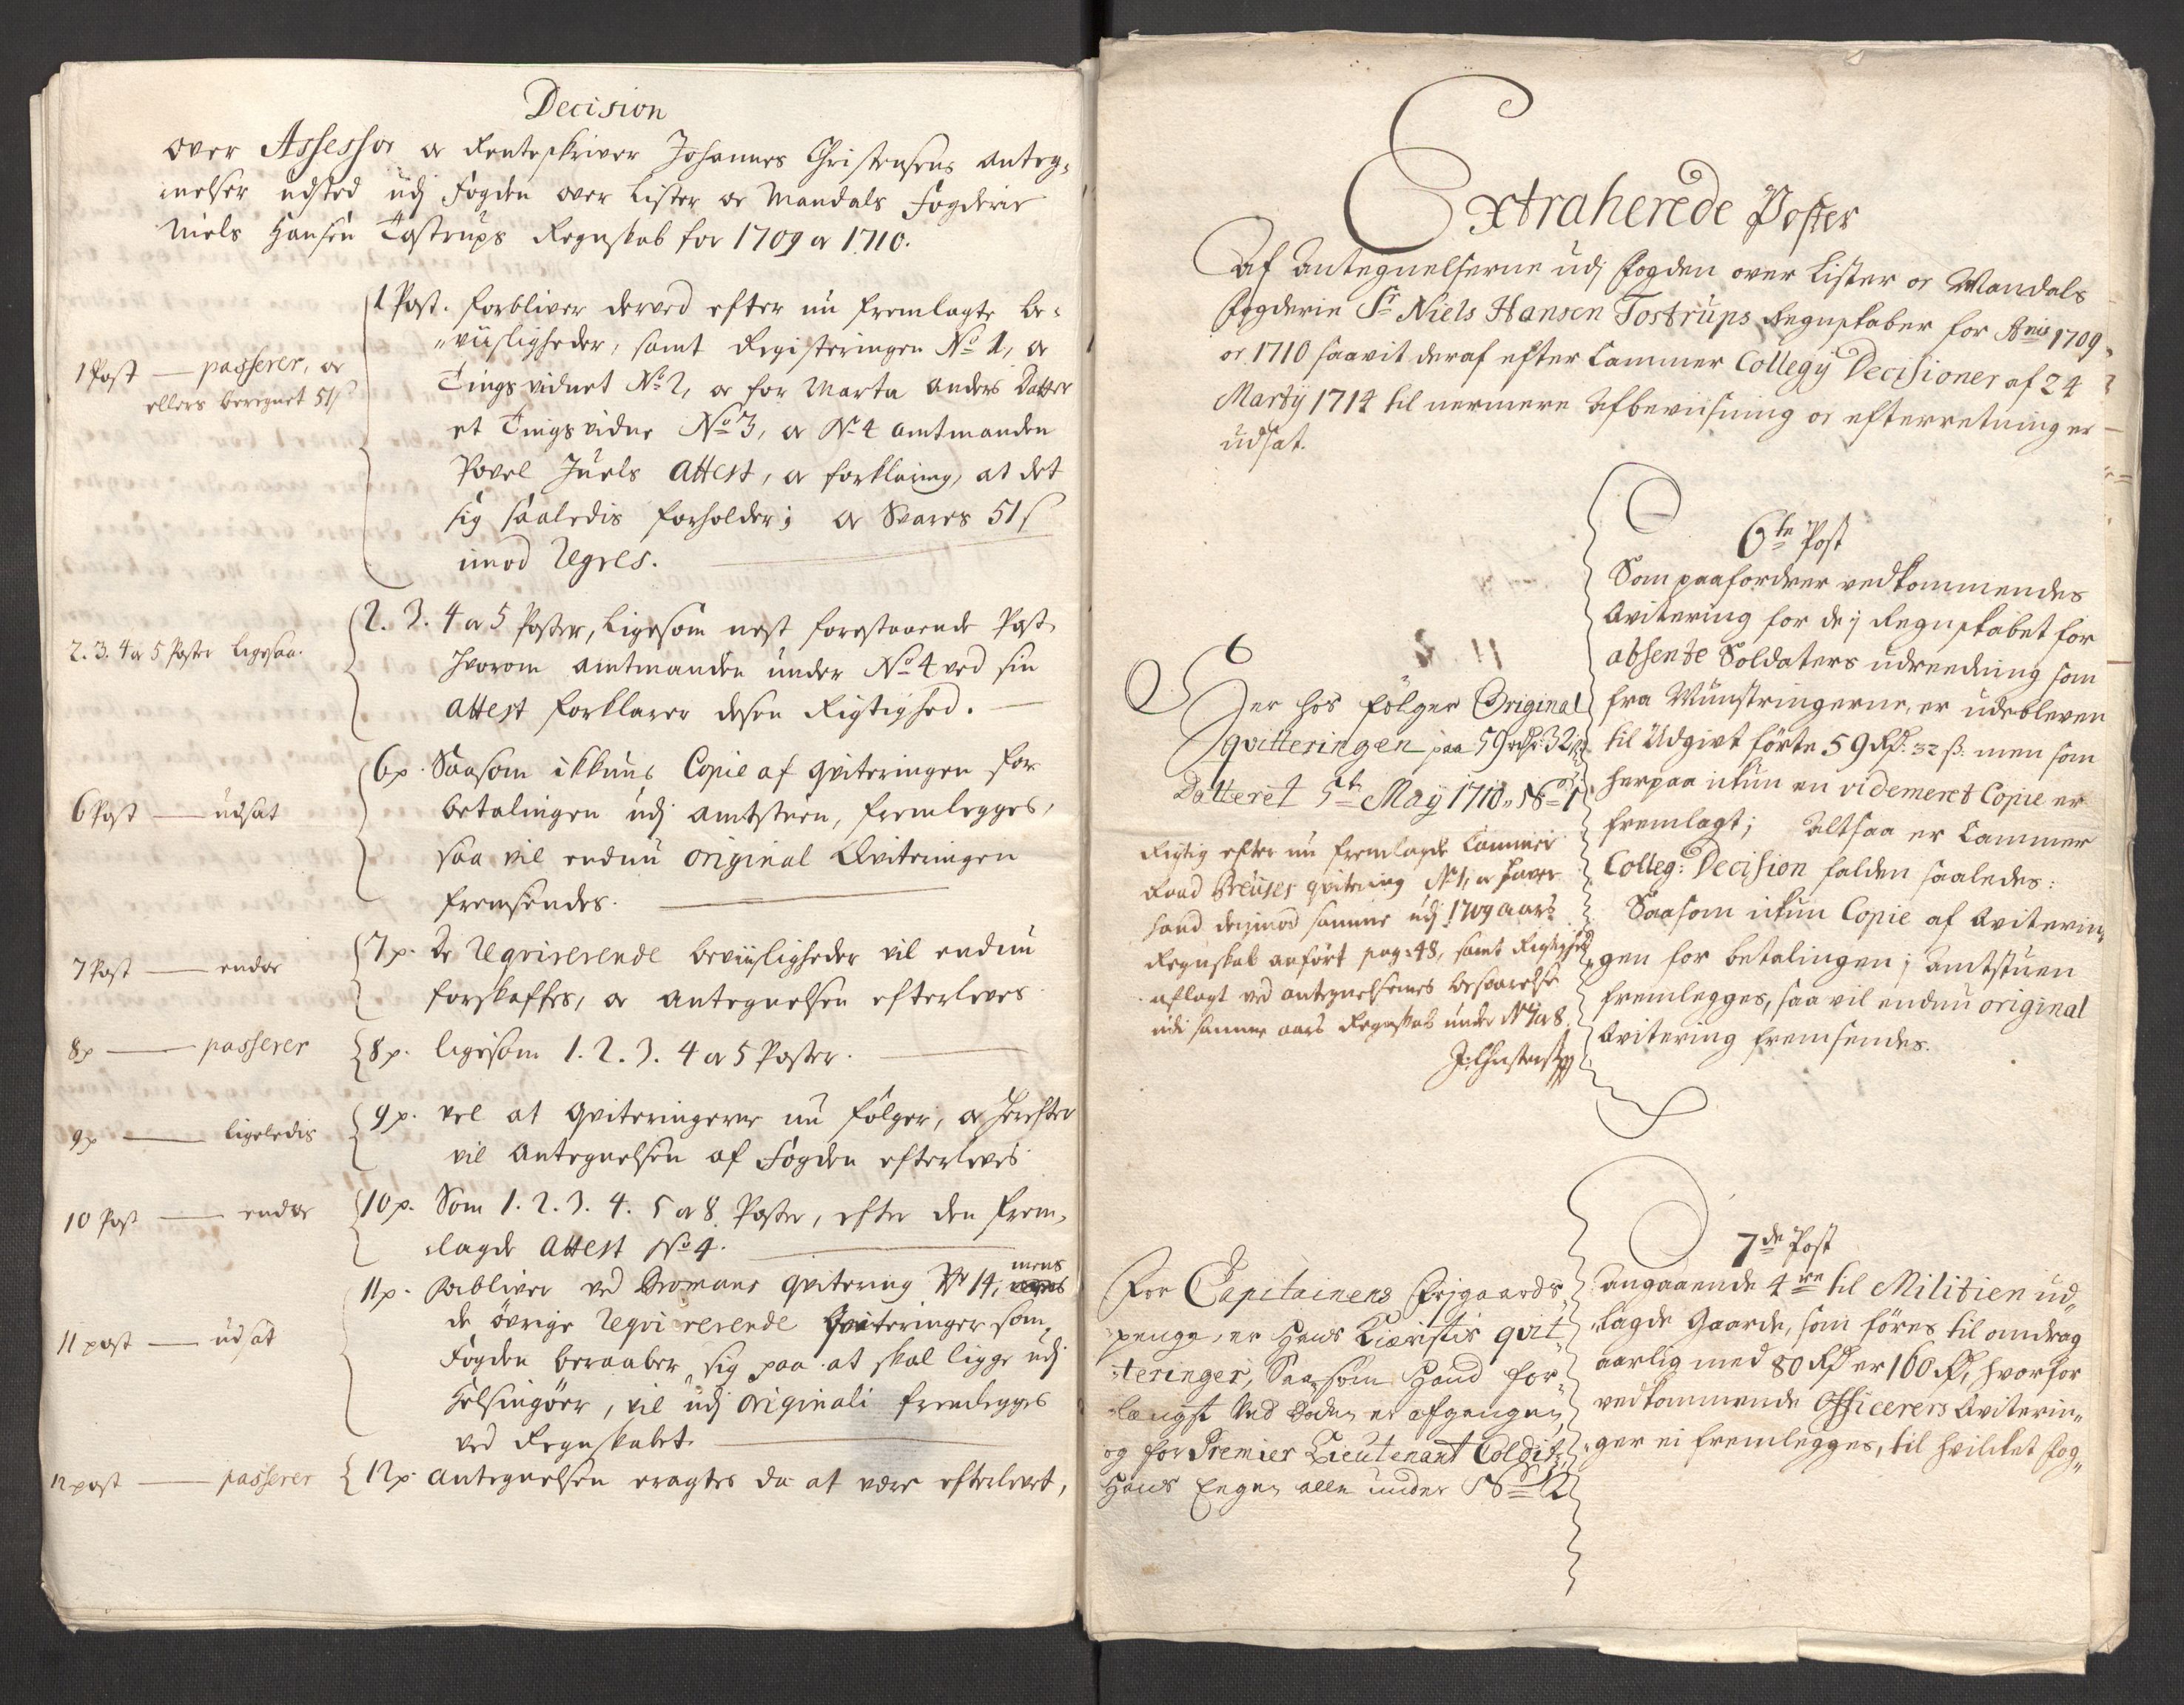 Decision
over Assessor og Renteskriver Johannes Christensens anteg-
nelser udsted udj Fogden over Lister og Mandals Fogderie
Niels Hansen Tostrups Regnskab for 1709 og 1710.
1 Post — passerer, og
ellers beregnet 51 s
1 Post. forbliver derved efter nu fremlagte be-
viisligheder, samt Registeringen No 1, og
Tingsvidnet No 2, og for Marta Anders Datter
et Tingsvidne No 3, og No 4 amtmanden
Povel Juels Attest, og forklaring, at det
sig saaledis forholder; og Svares 51 s
imod Regres.
2. 3. 4 og 5 Poster ligesaa.
2. 3. 4 og 5 Poster, Ligesom nest forestaaende Post
hvorom amtmanden under No 4 ved sin
Attest forklarer desen Rigtighed.
6 Post — udsat
6 p. Saasom ikkuns Copie af qviteringen for
betalingen udj amtstuen, fremlegges,
saa vil endnu original Qviteringen
fremsendes.
7 Post — endog
7 p. De Reqvirerende beviisligheder vil endnu
forskaffes, og antegnelsen efterleves
8 p — passerer
8 p. ligesom 1. 2. 3. 4 og 5 Poster.
9 p — ligeledis
9 p. vel at Qviteringerne nu følger, og herefter
vil Antegnelsen af Fogden efterleves
10 Post — endog
10 p. Som 1. 2. 3. 4. 5 og 8 Poster, efter den frem-
lagde Attest No 4.
11 post — udsat
11 p. forbliver ved Bromans qvitering No 14, mens
de övrige Reqvirerende Qviteringer som
Fogden beraaber sig paa at skal ligge udj
Helsingöer, vil udj originali fremlegges
ved Regnskabet.
12 post — passerer
12 p. Antegnelsen eragtes da at være efterlevet,
Extraherede Poster
Af Antegnelserne udj fogden over Lister og Mandals
fogderie Sr Niels Hansen Tostrups Regnskaber for Anis 1709
og 1710 saavit deraf efter Cammer Collegij Decisioner af 24
Martij 1714 til nermere Afbeviisning og efterretning er
udsat.
6te Post
Som paafordrer vedkommendes
Qvitering for de j Regnskabet for
absente Soldaters udreedning som
fra Munstringerne, er udebleven
til Udgivt förte 59 Rd: 32 ß. men som
herpaa ickun en videmeret Copie er
fremlagt; Altsaa er Cammer
Colleg: Decision falden saaledes:
Saasom ickun Copie af Qviterin-
gen for betalingen j Amtstuen
fremlegges, saa vil endnu original
Qvitering fremsendes.
6
Her hos fölger Original
qvitteringen paa 59 rdr 32 s
Datteret 5te Maij 1710 No 1
Rigtig efter nu fremlagde Cammer
Raad Breuses qvitering No 1, og haver
hand derjmod samme udj 1709 aars
Regnskab anfört pag: 48, samt Rigtighed
aflagt ved antegnelsernes besvarelse
udi samme aars Regnskab under No 7 og 8.
J: Christensen
7de Post
angaaende 4re til Militien ud-
lagde Gaarde, som föres til omdrag
aarlig med 80 Rd er 160 Rd, hvorfor
vedkommende Officerers Qviterin-
ger ei fremlegges, til hvilcket fog-
For Capitainens frigaards
penge, er Hans qvit-
teringer, Saasom Hand for-
längst ved Döden er afgangen,
og for Premier Lieutenant Colditz
Hans Egen alle under No 2